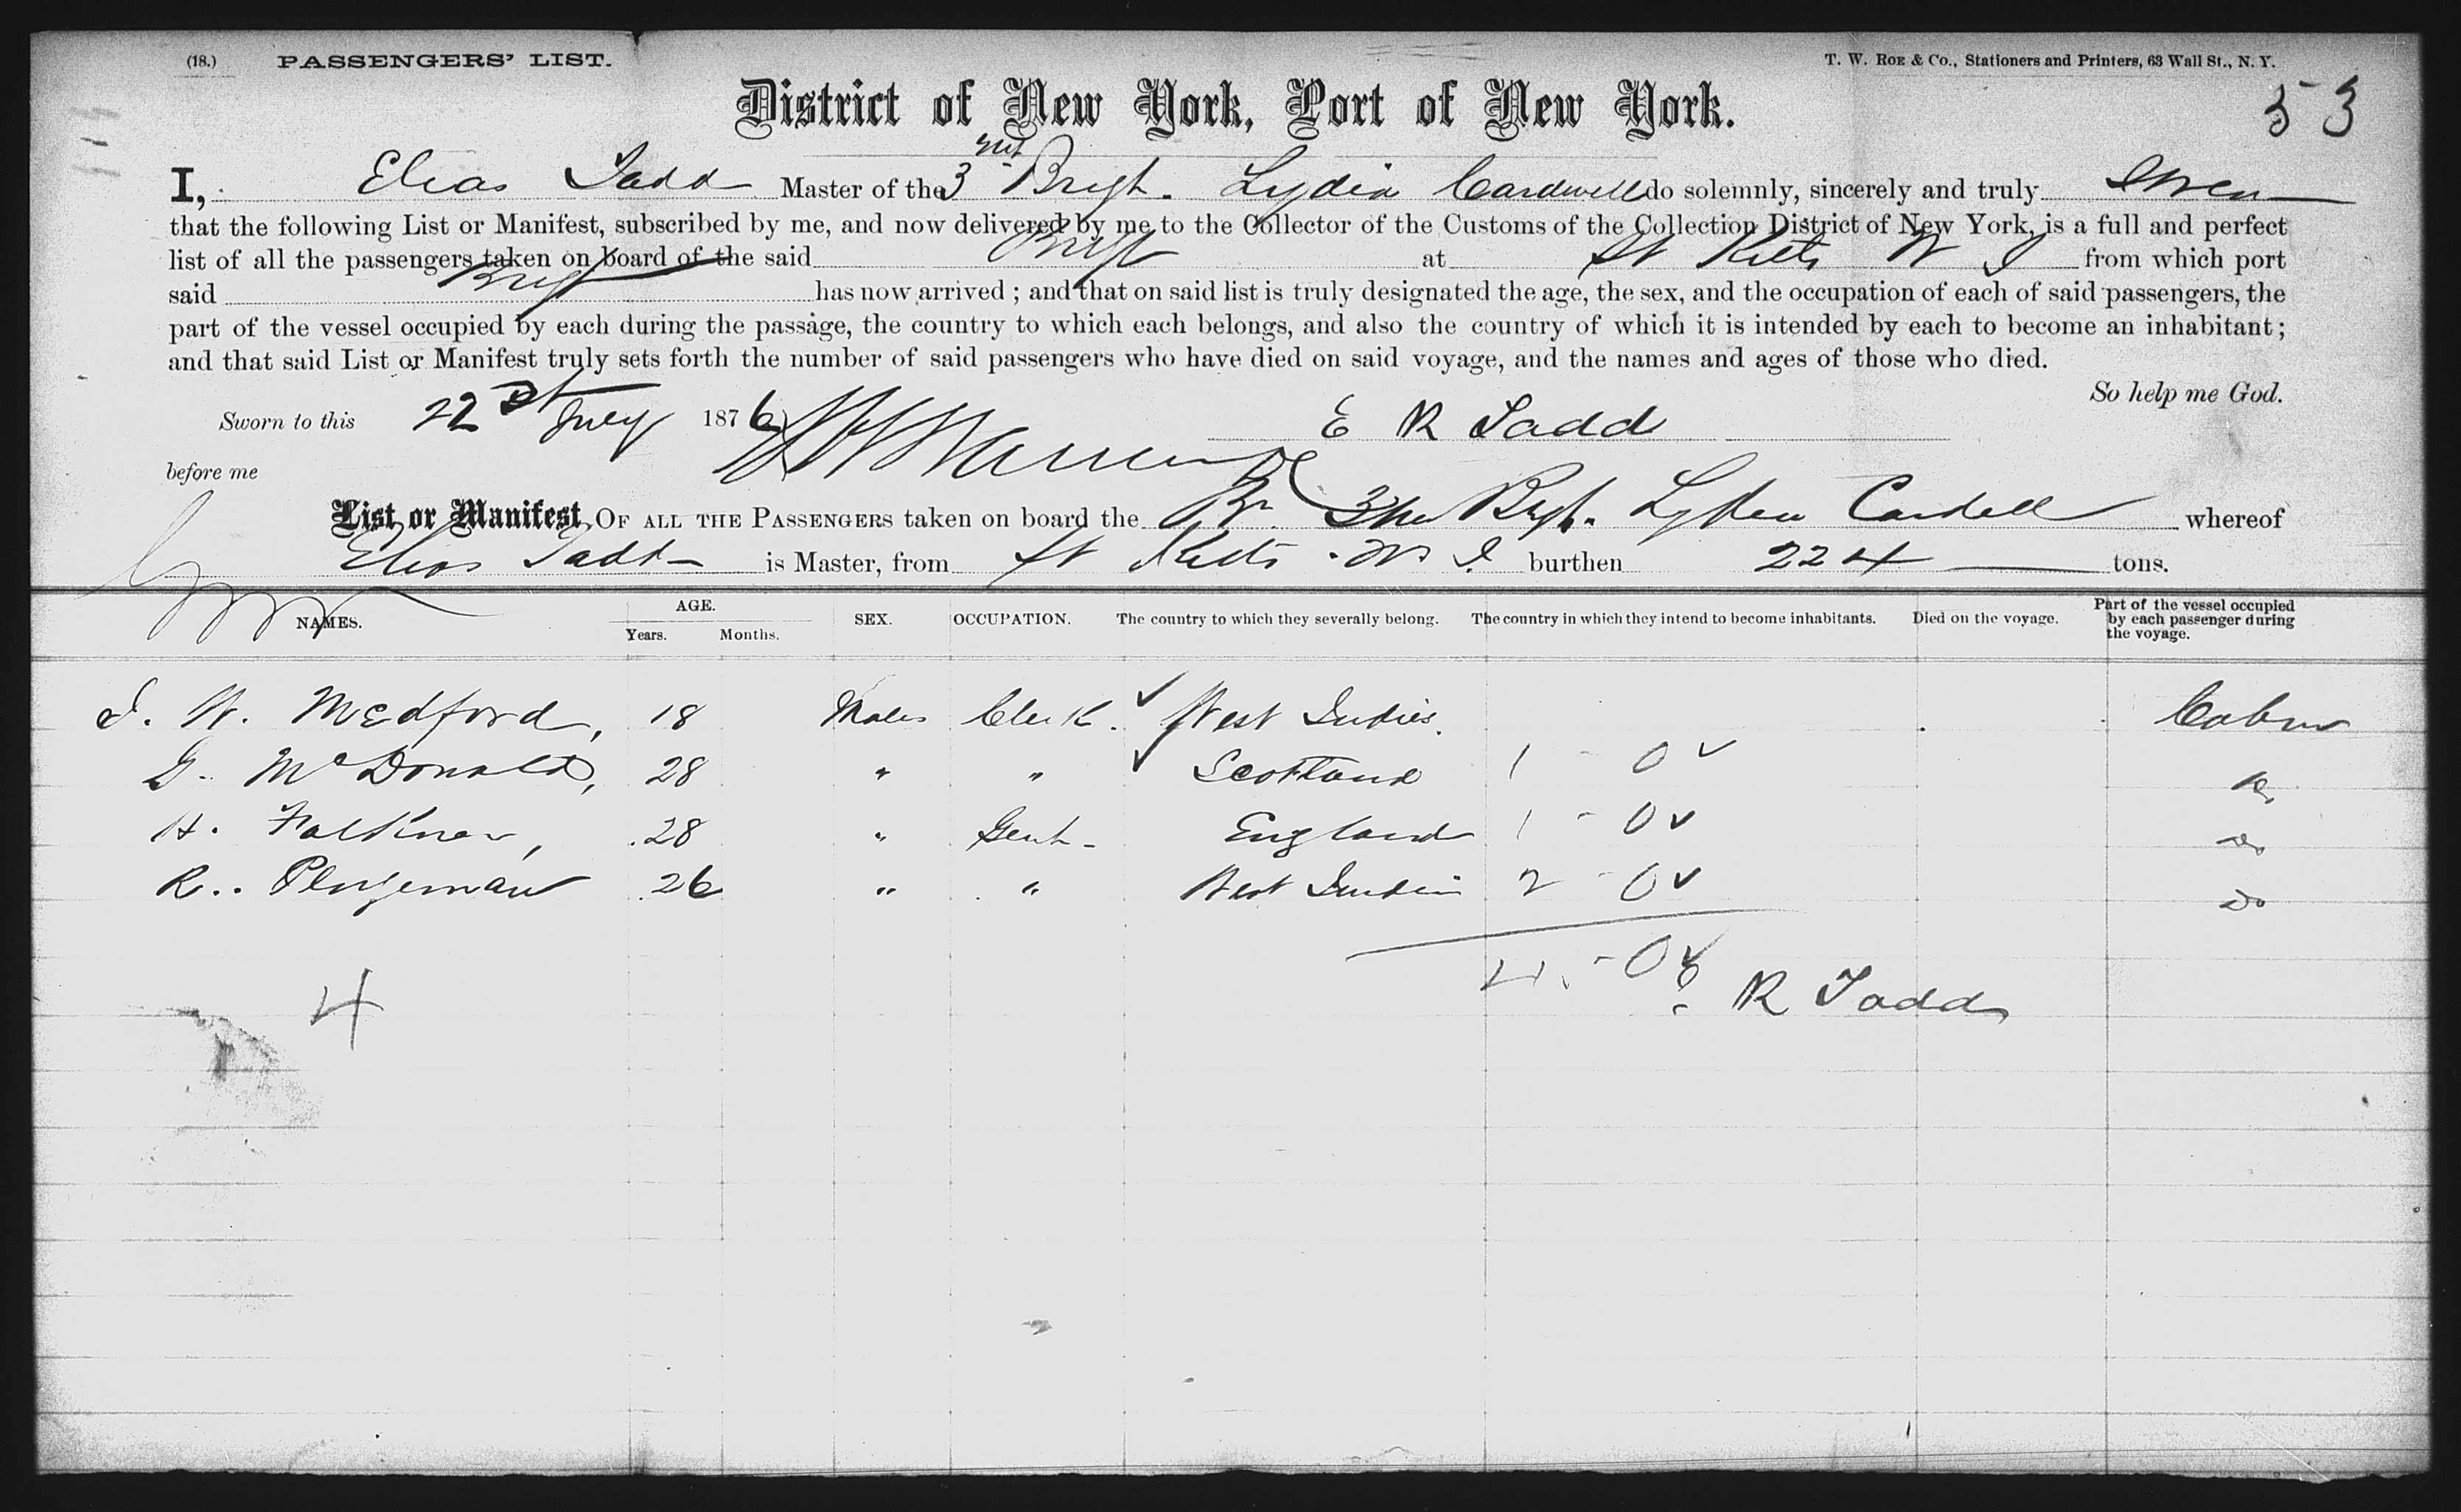 (18.) PASSENGERS' LIST. T. W. ROE & Co., Stationers and Printers, 63 Wall St., N. Y.
53
District of New York, Port of New York.
I, Elias Tadd Master of the 3 Mst Brigt. Lydia Cardwell do solemnly, sincerely and truly swear
that the following List or Manifest, subscribed by me, and now delivered by me to the Collector of the Customs of the Collection District of New York, is a full and perfect
list of all the passengers taken on board of the said Brigt at St Kitts W I from which port
said Brigt has now arrived ; and that on said list is truly designated the age, the sex, and the occupation of each of said passengers, the
part of the vessel occupied by each during the passage, the country to which each belongs, and also the country of which it is intended by each to become an inhabitant ;
and that said List or Manifest truly sets forth the number of said passengers who have died on said voyage, and the names and ages of those who died.
So help me God.
Sworn to this 22 July 1876 E R Tadd
before me
List or Manifest, OF ALL THE PASSENGERS taken on board the Br. Brgt. Cardell whereof
Elias Tadd is Master, from St Kitts W. I. burthen 224 tons.
NAMES. AGE. Years. Months. SEX. OCCUPATION. The country to which they severally belong. The country in which they intend to become inhabitants. Died on the voyage. Part of the vessel occupied by each passenger during the voyage.
J. W. Medford, 18 Males Clerk. ✓ West Indies. Cabin
G. McDonald, 28 " " ✓ Scotland 1 - 0 ✓ Do
H. Falkner, 28 " Gent - England 1 - 0 ✓ Do
R. 26 " " West Indies 2 - 0 ✓ Do
4 - 0 ✓
4 E R Tadd